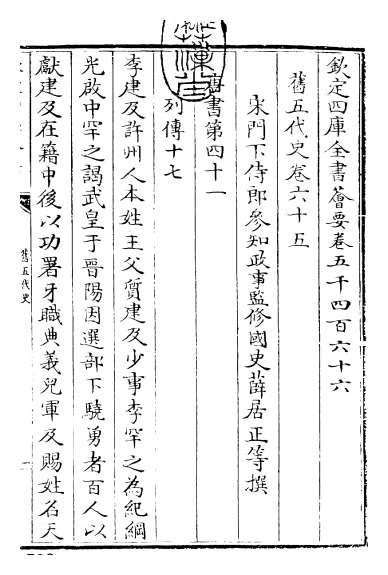 欽定四庫全書薈要卷五千四百六十六
舊五代史卷六十五
宋門下侍郎參知政事監修國史薛居正等撰
唐書第四十一
列傳十七
李建及許州人本姓王父質建及少事李罕之為紀綱
光啟中罕之謁武皇于晉陽因選部下驍勇者百人以
獻建及在籍中後以功署牙職典義兒軍及賜姓名天
舊五代史
一